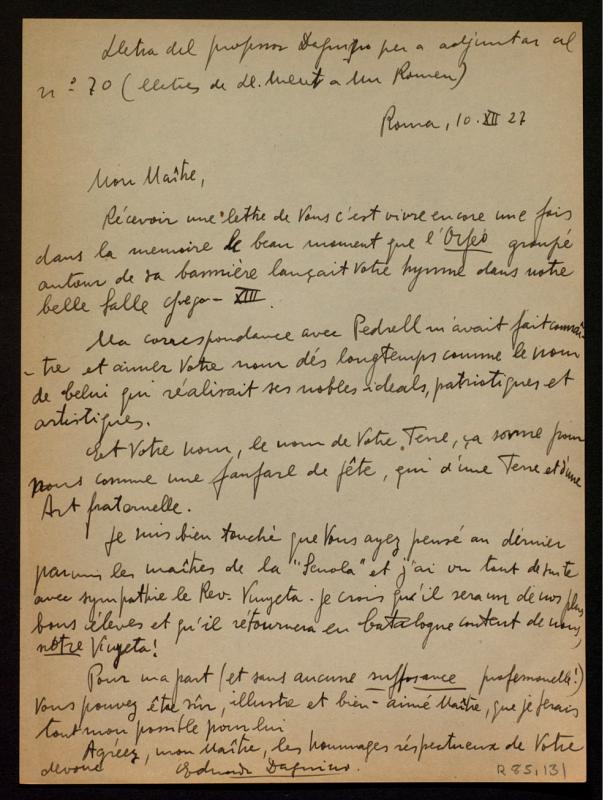 Lletra del professor Dagnino per a adjuntar al
nº 70 (lletres de Ll. Millet a Mn Romeu)
Roma, 10. XII 27
Mon Maître,
Récevoir une lettre de Vous c'est vivre encore une fois
dans la memoire le beau moment que l'Orfeó groupé
autour de sa bannière lançait Votre hymne dans notre
belle Salle Grego- XIII.
Ma correspondance avec Pedrell m'avait fait connaî-
-tre et aimer Votre nom dés longtemps comme le nom
de Celui qui réalisait ses nobles ideals, patriotiques et
artistiques.
Et Votre nom, le nom de Votre Terre, ça sonne pour
nous comme une fanfare de fête, qui d'une Terre et d'une
Art fraternelle.
Je suis bien touché que Vous ayez pensé au dérnier
parmis les maîtres de la "Scuola" et j'ai vu tout de suite
avec sympathie le Rev. Vinyeta. Je crois qu'il sera un de nos plus
bons élèves et qu'il rétournera en Catalogne content de nous,
nôtre Vinyeta!
Pour ma part (et sans aucune suffosance professionelle!)
Vous pouvez être sûr, illustre et bien-aimé Maître, que je ferais
tout mon possible pour lui
Agréez, mon Maître, les hommages réspectueux de Votre
devoué Eduardo Dagnino.
R 85, 131